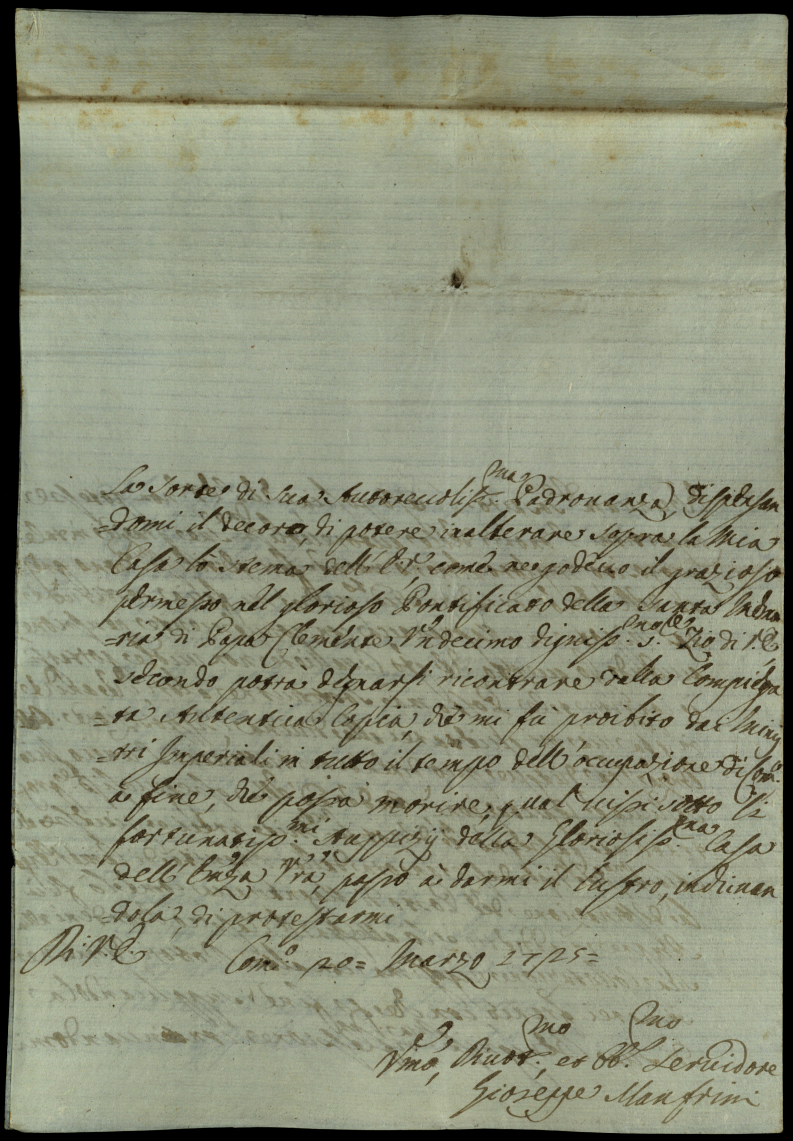 La sorte di sua Autoreuolis.ma Padronanza, dispensan
=domi il decoro, di potere inalberare sopra la mia
Casa lo stema dell' E.V. come ne godeuo il grazioso
permesso nel glorioso Pontificato della Santa Memo
=ria di Papa Clemente Vndecimo digniss.mo S. Zio di V.E.
secondo potrà degnarsi ricontrare dalla Compiega
=ta Autentica Copia, che mi fù proibito da Mini
=tri Imperiali in tutto il tempo dell' ocupazione di Com.o
a fine, che possa morire, qual uissi sotto li
fortunatiss.mi Auspizij della Gloriosiss.ma Casa
dell' Enza Vra, passo à darmi il lustro, inchinan
dola, di protestarmi
Di V.E. Com.o 20= Marzo 1725=
Vmo, Diuot.mo, et Obb.mo Seruidore
Gioseppe Manfrini